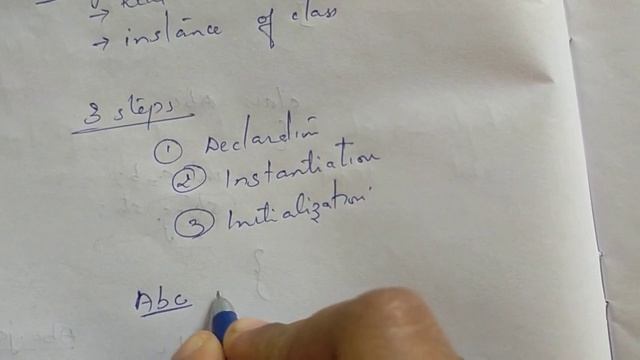 →
→ instance of class
3 steps
① Declaration
② Instantiation
③ Initialization
Abc